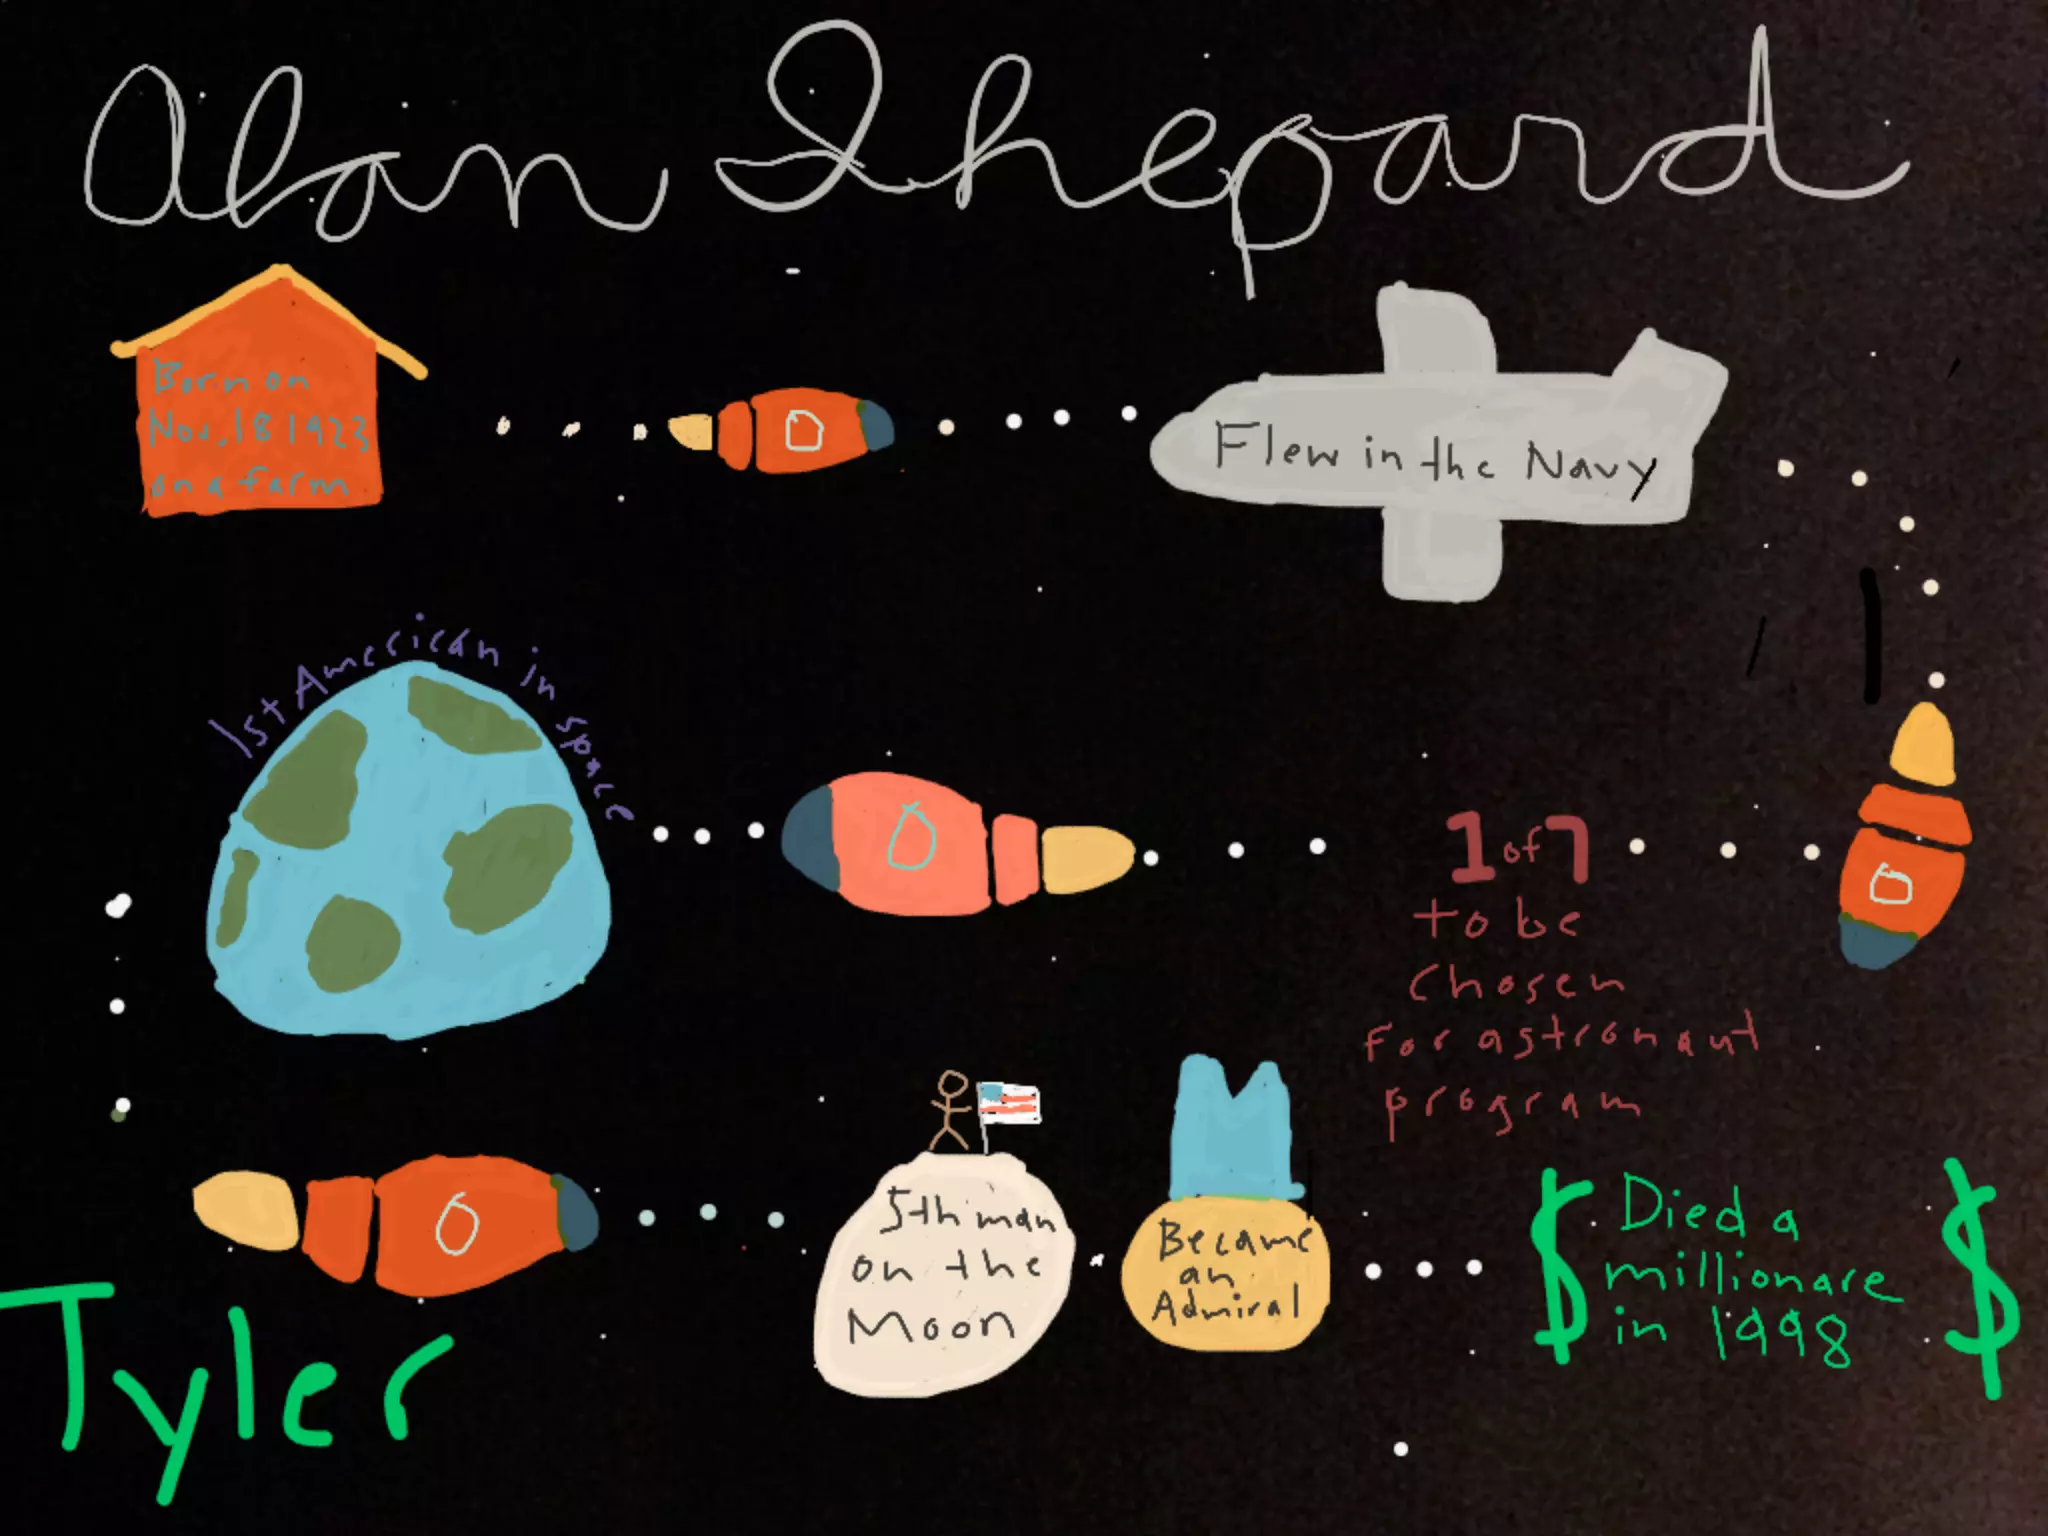 Alan Shepard
Born on
Nov, 18 1923
on a farm
Flew in the Navy
1st American in space
1 of 7
to be
chosen
for astronaut
program
5th man
on the
Moon
Became
an
Admiral
$ Died a $
millionare
in 1998
Tyler